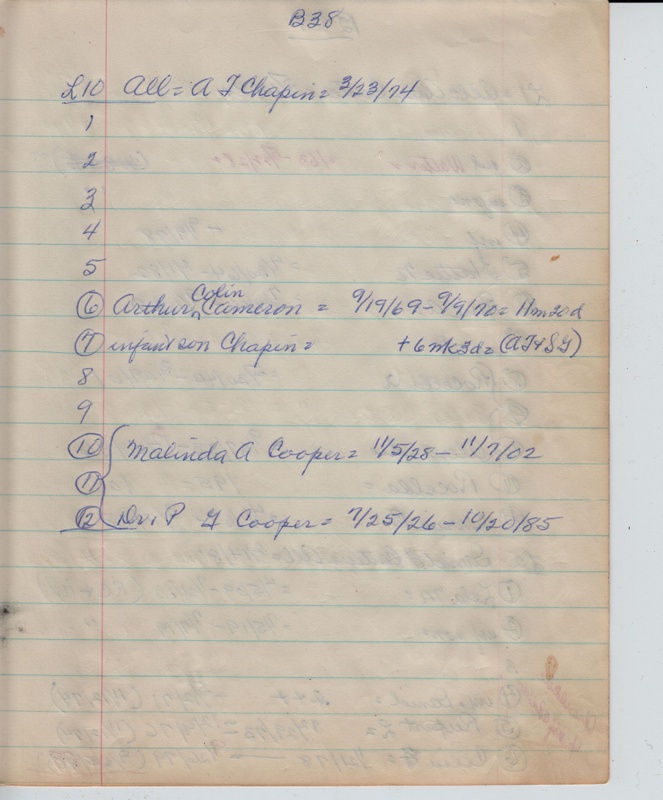 B38
L10 All = A J Chapin = 3/23/74
1
2
3
4
5
6 Arthur Colin Cameron = 9/19/69 - 9/9/70 = 11m20d
7 infant son Chapin = + 6 wk 3d = (AJ & SJ)
8
9
10 Malinda A Cooper = 11/5/28 - 11/7/02
11
12 Dr. P G Cooper = 7/25/26 - 10/20/85